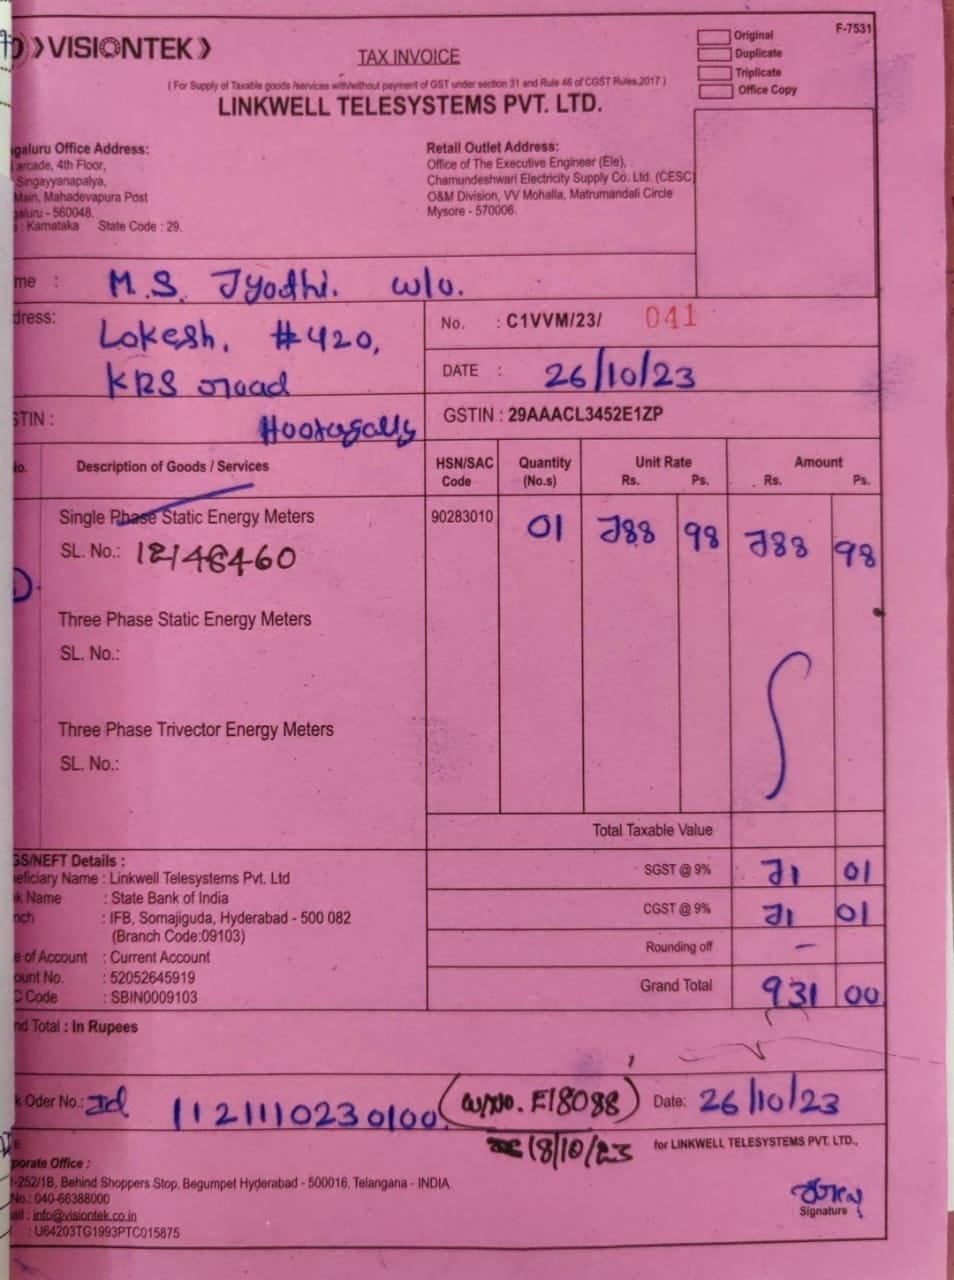 VISIONTEK
F-7531
TAX INVOICE
Original
Duplicate
Triplicate
Office Copy
( For Supply of Taxable goods /services with/without payment of GST under section 31 and Rule 46 of CGST Rules,2017 )
LINKWELL TELESYSTEMS PVT. LTD.
galuru Office Address:
arcade, 4th Floor,
Singayyanapalya,
Main, Mahadevapura Post
galuru - 560048.
: Karnataka State Code : 29.
Retail Outlet Address:
Office of The Executive Engineer (Ele),
Chamundeshwari Electricity Supply Co. Ltd. (CESC)
O&M Division, VV Mohalla, Matrumandali Circle
Mysore - 570006.
me : M.S. Jyodhi. w/o.
dress: Lokesh, #420,
KRS road
Hootagally
No. : C1VVM/23/ 041
DATE : 26/10/23
STIN :
GSTIN : 29AAACL3452E1ZP
No. Description of Goods / Services HSN/SAC Code Quantity (No.s) Unit Rate Rs. Ps. Amount Rs. Ps.
Single Phase Static Energy Meters 90283010 01 788 98 788 98
SL. No.: 12148460
Three Phase Static Energy Meters
SL. No.:
Three Phase Trivector Energy Meters
SL. No.:
Total Taxable Value
GS/NEFT Details :
eficiary Name : Linkwell Telesystems Pvt. Ltd
k Name : State Bank of India
nch : IFB, Somajiguda, Hyderabad - 500 082
(Branch Code:09103)
e of Account : Current Account
ount No. : 52052645919
C Code : SBIN0009103
SGST @ 9% 71 01
CGST @ 9% 71 01
Rounding off -
Grand Total 931 00
nd Total : In Rupees
k Oder No.: Id 1121110230100 (W/No. E18088) Date: 26/10/23
18/10/23
for LINKWELL TELESYSTEMS PVT. LTD.,
porate Office :
-252/1B, Behind Shoppers Stop, Begumpet Hyderabad - 500016, Telangana - INDIA
No.: 040-66388000
ail : info@visiontek.co.in
: U64203TG1993PTC015875
Signature